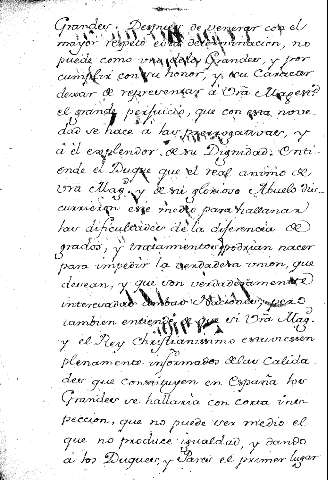 Grandes. Despues de venerar con el
mayor respeto esta determinacion, no
puede como uno de los Grandes, y por
cumplir con su honor, y su Caracter
dexar de representar à Vra Magestd
el grande perjuicio, que con esta nove-
dad se hace à las prerrogativas, y
à el explendor de su Dignidad. Enti-
ende el Duque que el real animo de
Vra Magd. y de su glorioso Abuelo dis-
currieron este medio para hallanar
las dificultades de la diferencia de
grados, y tratamientos podrian nacer
para impedir la verdadera union, que
desean, y que son verdaderamente
interesadas ambas Naciones, pero
tambien entiende que si Vra Magd.
y el Rey Christianissimo estuviessen
plenamente informados de las Calida-
des que constituyen en España los
Grandes se hallaria con corta ins-
peccion, que no puede ser medio el
que no produce igualdad, y dando
à los Duques, y Pares el primer lugar